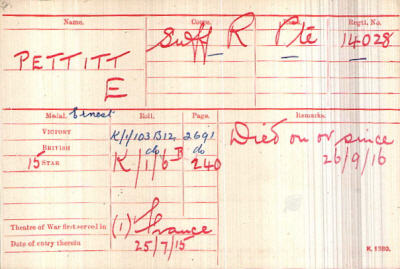 Name.
Corps.
Rank.
Regtl. No.
PETTITT
E
Suff R
Pte
14028
Medal.
Ernest
Roll.
Page.
Remarks.
VICTORY
K/1/103B12
2691
BRITISH
do
do
15 STAR
K/1/6 B
240
Died on or since
26/9/16
Theatre of War first served in
(1) France
Date of entry therein
25/7/15
K. 1380.